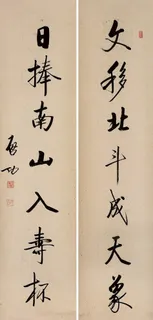 文移北斗成天象
日捧南山入壽杯
啓功